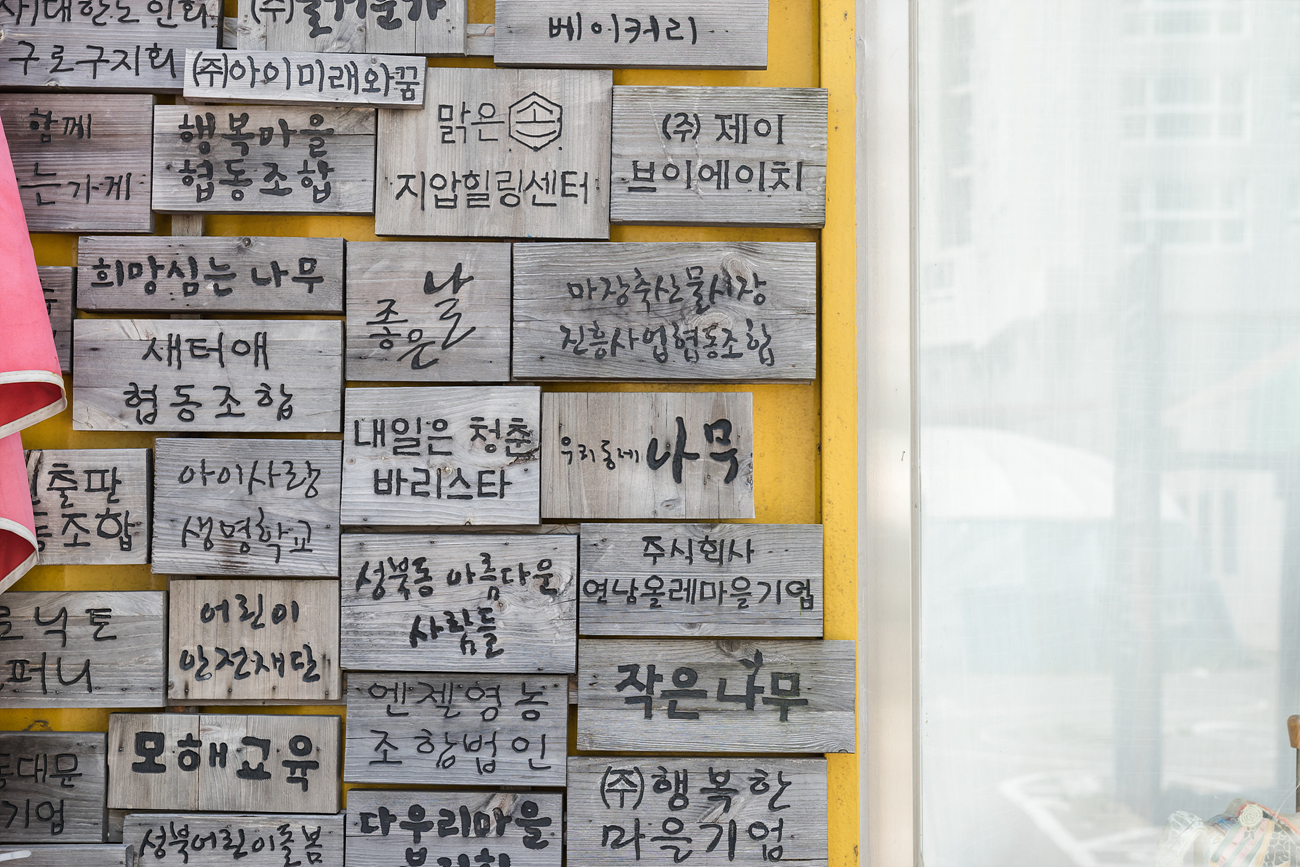 구로구지회
(주)아이미래와꿈
베이커리
함께
는가게
행복마을
협동조합
맑은 손
지압힐링센터
(주) 제이
브이에이치
희망심는 나무
좋은 날
마장축산물시장
진흥사업협동조합
새터애
협동조합
내일은 청춘
바리스타
우리동네 나무
출판
조합
아이사랑
생명학교
성북동 아름다운
사람들
주식회사
연남올레마을기업
닉토
퍼니
어린이
안전재단
작은 나무
엔젤영농
조합법인
모해교육
대문
기업
(주)행복한
마을기업
성북어린이돌봄
다우리마을